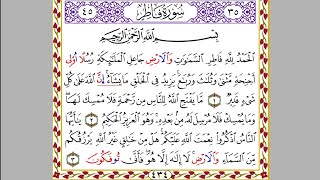 ٣٥ سُورَةُ فَاطِرٍ ٤٥
بِسْمِ اللَّهِ الرَّحْمَٰنِ الرَّحِيمِ
الْحَمْدُ لِلَّهِ فَاطِرِ السَّمَٰوَٰتِ وَالْأَرْضِ جَاعِلِ الْمَلَٰٓئِكَةِ رُسُلًا أُولِىٓ
أَجْنِحَةٍ مَّثْنَىٰ وَثُلَٰثَ وَرُبَٰعَ يَزِيدُ فِى الْخَلْقِ مَا يَشَآءُ إِنَّ اللَّهَ عَلَىٰ كُلِّ
شَىْءٍ قَدِيرٌ ١ مَّا يَفْتَحِ اللَّهُ لِلنَّاسِ مِن رَّحْمَةٍ فَلَا مُمْسِكَ لَهَا
وَمَا يُمْسِكْ فَلَا مُرْسِلَ لَهُۥ مِنۢ بَعْدِهِۦ وَهُوَ الْعَزِيزُ الْحَكِيمُ ٢ يَٰٓأَيُّهَا
النَّاسُ اذْكُرُوا نِعْمَتَ اللَّهِ عَلَيْكُمْ هَلْ مِنْ خَٰلِقٍ غَيْرُ اللَّهِ يَرْزُقُكُم
مِّنَ السَّمَآءِ وَالْأَرْضِ لَآ إِلَٰهَ إِلَّا هُوَ فَأَنَّىٰ تُؤْفَكُونَ ٣
٤٣٤